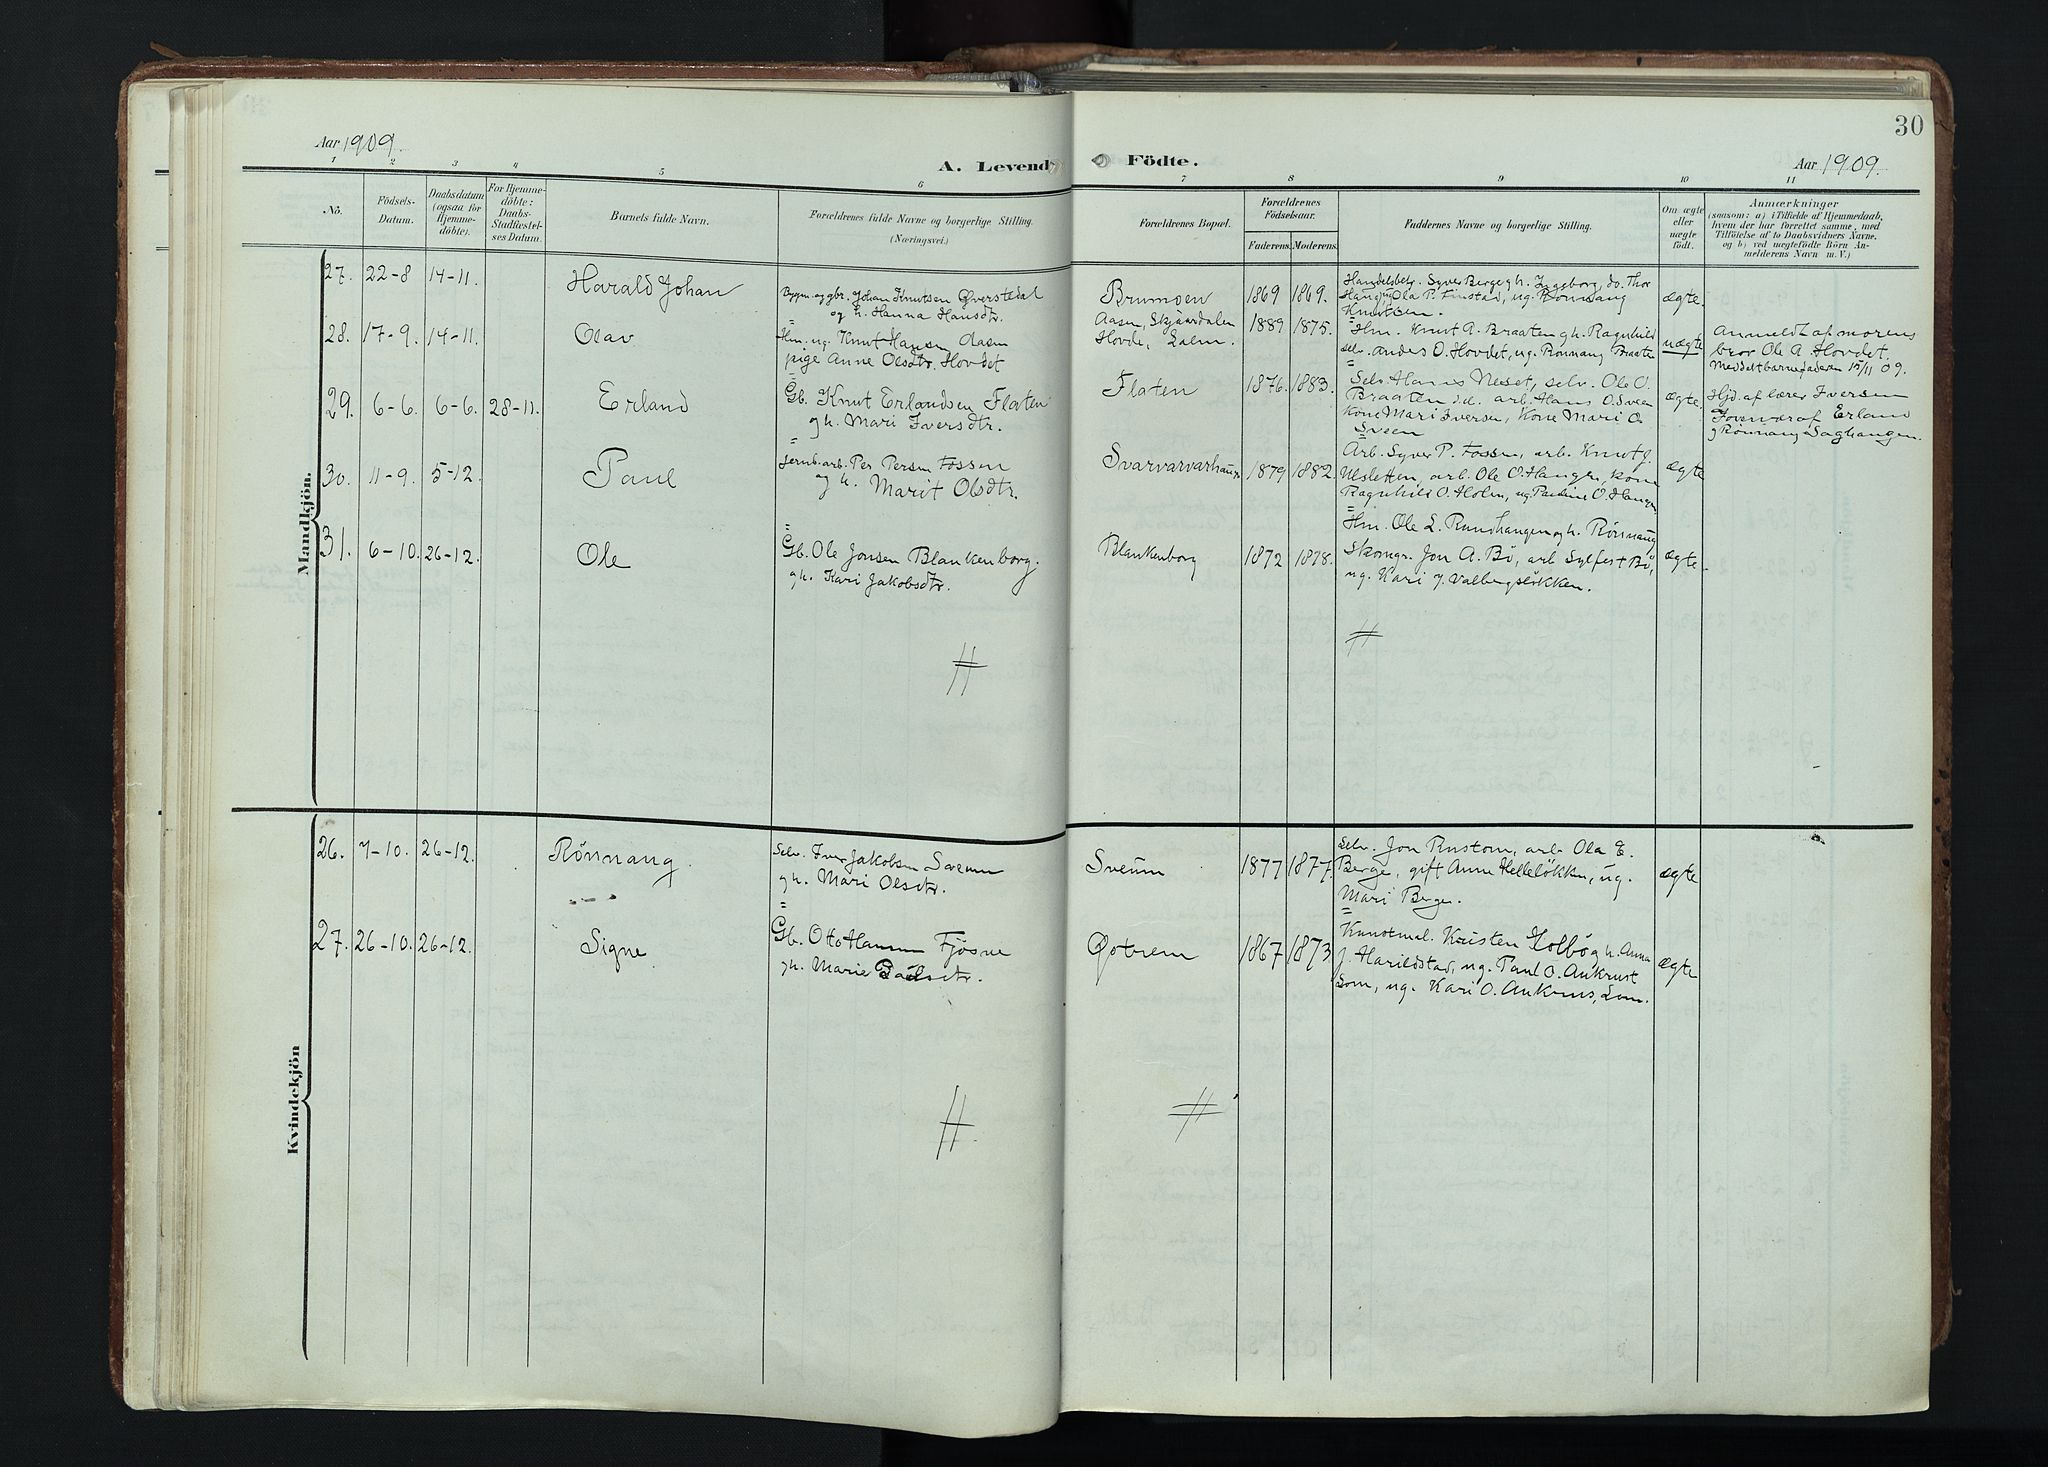 30
Aar 1909.
A. Levende Födte.
Aar 1909.
1 2 3 4 5 6 7 8 9 10 11
No.
Födsels-Datum.
Daabsdatum (ogsaa for Hjemme-döbte).
For Hjemme-döbte: Daabs-Stadfæstel-ses Datum.
Barnets fulde Navn.
Forældrenes fulde Navne og borgerlige Stilling. (Næringsvei.)
Forældrenes Bopæl.
Forældrenes Födselsaar.
Faderens. Moderens.
Faddernes Navne og borgerlige Stilling.
Om ægte eller uægte födt.
Anmærkninger
(saasom: a) i Tilfælde af Hjemmedaab, hvem der har forrettet samme, med Tilföielse af to Daabsvidners Navne, og b) ved uægtefödte Börn An-melderens Navn m. V.)
Mandkjön.
27. 22-8 14-11. Harald Johan
Byggm. og gbr. Johan Knutsen Øverstedal
og h. Hanna Hansdtr.
Brumoen 1869 1869.
Handelsbetj. Syver Berge g h. Ingeborg, do. Thor
Haugen, Ola P. Finstad, ug. Rønnaug
Knutsen.
ægte.
28. 17-9. 14-11. Olav
Hm. ug. Knut Hansen Aasen
pige Anne Olsdtr. Hovdet
Aasen, Skjåardalen
Hovde,
1889 1875.
Hm. Knut A. Braaten g h. Ragnhild
selv. Anders O. Hovdet, ug. Rønnaug Braate
uægte
Anmeldt af morens
bror Ole A. Hovdet.
Meddelt barnefaderen 15/11 09.
29. 6-6. 6-6. 28-11. Erland
Gb. Knut Erlandsen Flaten
g h. Mari Iversdtr.
Flaten 1876. 1883.
Selv. Hans Neset, selv. Ole O.
Braaten s.d. arb. Hans O. Sveen
Kone Mari Iversen, Kone Mari O.
Sveen
ægte.
Hjd. af lærer Iversen
i overvær af Erland
g Rønnaug Saghaugen.
30. 11-9. 5-12. Paul
Jernb. arb. Per Persen Fossen
og h. Marit Olsdtr.
Svarvarvarhaugen 1879 1882.
Arb. Syver P. Fossen, arb. Knut J.
Ulsletten, arb. Ole O. Haugen, kone
Ragnhild O. Holen, ug. Pauline O. Haugen.
ægte
31. 6-10. 26-12. Ole
Gb. Ole Jonsen Blankenborg.
g h. Kari Jakobsdtr.
Blankenborg 1872 1878.
Hm. Ole L. Rundhaugen og h. Rønnaug
Skomgr. Jon A. Bö, arb Sylfest Bö,
ug. Kari J. Valbergsløkken.
ægte.
Kvindekjön
26. 7-10. 26-12. Rönnaug.
Selv. Iver Jakobsen Sveum
g h. Mari Olsdtr.
Sveum 1877 1877.
Selv. Jon Rustom, arb. Ola E.
Berge, gift Anne Helleløkken, ug.
Mari Berge.
ægte
27. 26-10. 26-12. Signe
Gb. Otto Hansen Fjösne
g h. Marie Paulsdtr.
Øotrem 1867 1873
Kunstmal. Kristen Holbö g h. Anna
J. Harildstad, ug. Paul O. Aukrust
Lom, ug. Kari O. Aukrust, Lom.
ægte